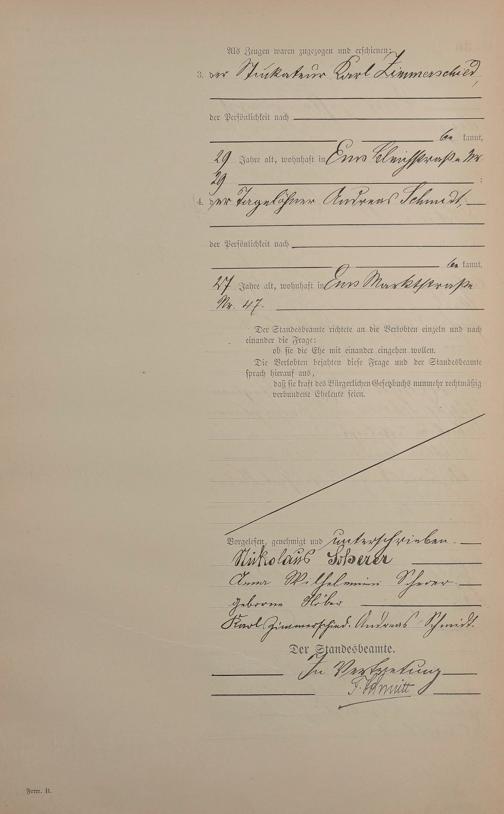 Als Zeugen waren zugezogen und erschienen:
3. der Stukateur Karl Zimmerschied,
der Persönlichkeit nach
be kannt,
29 Jahre alt, wohnhaft in Ems Bleichstraße Nr
29
4. der Tagelöhner Andreas Schmidt,
der Persönlichkeit nach
be kannt,
27 Jahre alt, wohnhaft in Ems Marktstraße
Nr. 47.
Der Standesbeamte richtete an die Verlobten einzeln und nach
einander die Frage:
ob sie die Ehe mit einander eingehen wollen.
Die Verlobten bejahten diese Frage und der Standesbeamte
sprach hierauf aus,
daß sie kraft des Bürgerlichen Gesetzbuchs nunmehr rechtmäßig
verbundene Eheleute seien.
Vorgelesen, genehmigt und unterschrieben.
Nikolaus Scherer
Anna Wilhelmine Scherer
geborne
Karl Zimmerschied. Andreas Schmidt.
Der Standesbeamte.
In Vertretung
Schmitt
Form. B.